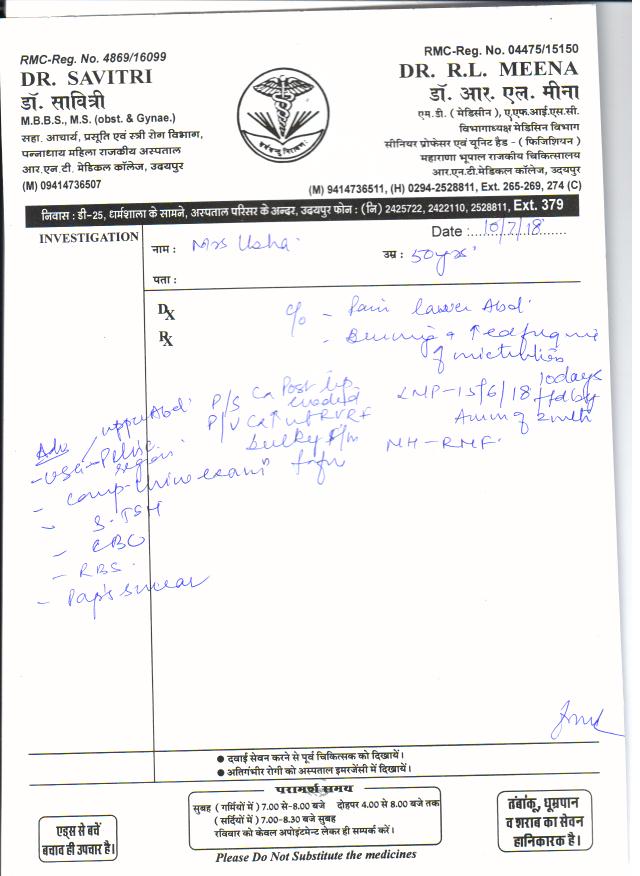 RMC-Reg. No. 4869/16099
DR. SAVITRI
डॉ. सावित्री
M.B.B.S., M.S. (obst. & Gynae.)
सहा. आचार्य, प्रसूति एवं स्त्री रोग विभाग,
पन्नाधाय महिला राजकीय अस्पताल
आर.एन.टी. मेडिकल कॉलेज, उदयपुर
(M) 09414736507
RMC-Reg. No. 04475/15150
DR. R.L. MEENA
डॉ. आर. एल. मीना
एम.डी. ( मेडिसीन ), ए,एफ.आई.एस.सी.
विभागाध्यक्ष मेडिसिन विभाग
सीनियर प्रोफेसर एवं यूनिट हैड - ( फिजिशियन )
महाराणा भूपाल राजकीय चिकित्सालय
आर.एन.टी.मेडिकल कॉलेज, उदयपुर
(M) 9414736511, (H) 0294-2528811, Ext. 265-269, 274 (C)
निवास : डी-25, धर्मशाला के सामने, अस्पताल परिसर के अन्दर, उदयपुर फोन : (नि) 2425722, 2422110, 2528811, Ext. 379
INVESTIGATION
Date : 10/7/18
नाम : Mrs Usha
उम्र : 50yrs
पता :
Dx
Rx
c/o - Pain lower Abd.
- Burning & ↑ed
of micturition
LMP-15/6/18 10days
P/S Cx Post lip
eroded
P/V Cx ↑ ut RVRF
bulky
MH-RMF
Adv
- USG - Pelvic upper Abd.
region
- comp. Urine exam
- S.TSH
- CBC
- RBS
- Pap's smear
● दवाई सेवन करने से पूर्व चिकित्सक को दिखायें।
● अतिगंभीर रोगी को अस्पताल इमरजेंसी में दिखायें।
परामर्श समय
सुबह ( गर्मियों में ) 7.00 से-8.00 बजे दोहपर 4.00 से 8.00 बजे तक
( सर्दियों में ) 7.00-8.30 बजे सुबह
रविवार को केवल अपोइंटमेन्ट लेकर ही सम्पर्क करें।
Please Do Not Substitute the medicines
एड्स से बचें
बचाव ही उपचार है।
तंबांकू, धूम्रपान
व शराब का सेवन
हानिकारक है।